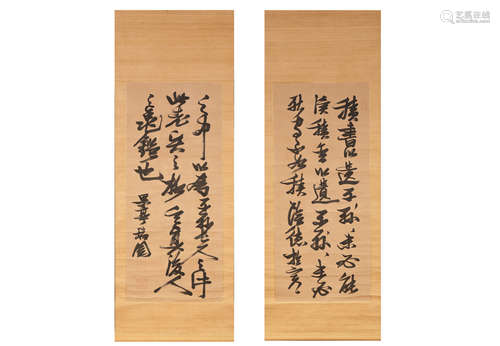 積書以遺子孫未必能
讀積金以遺子孫未必
能守不如積陰德於冥冥
之中以為子孫長久之計
此先賢之格言後人
之龜鑑也
果亭瑞圖